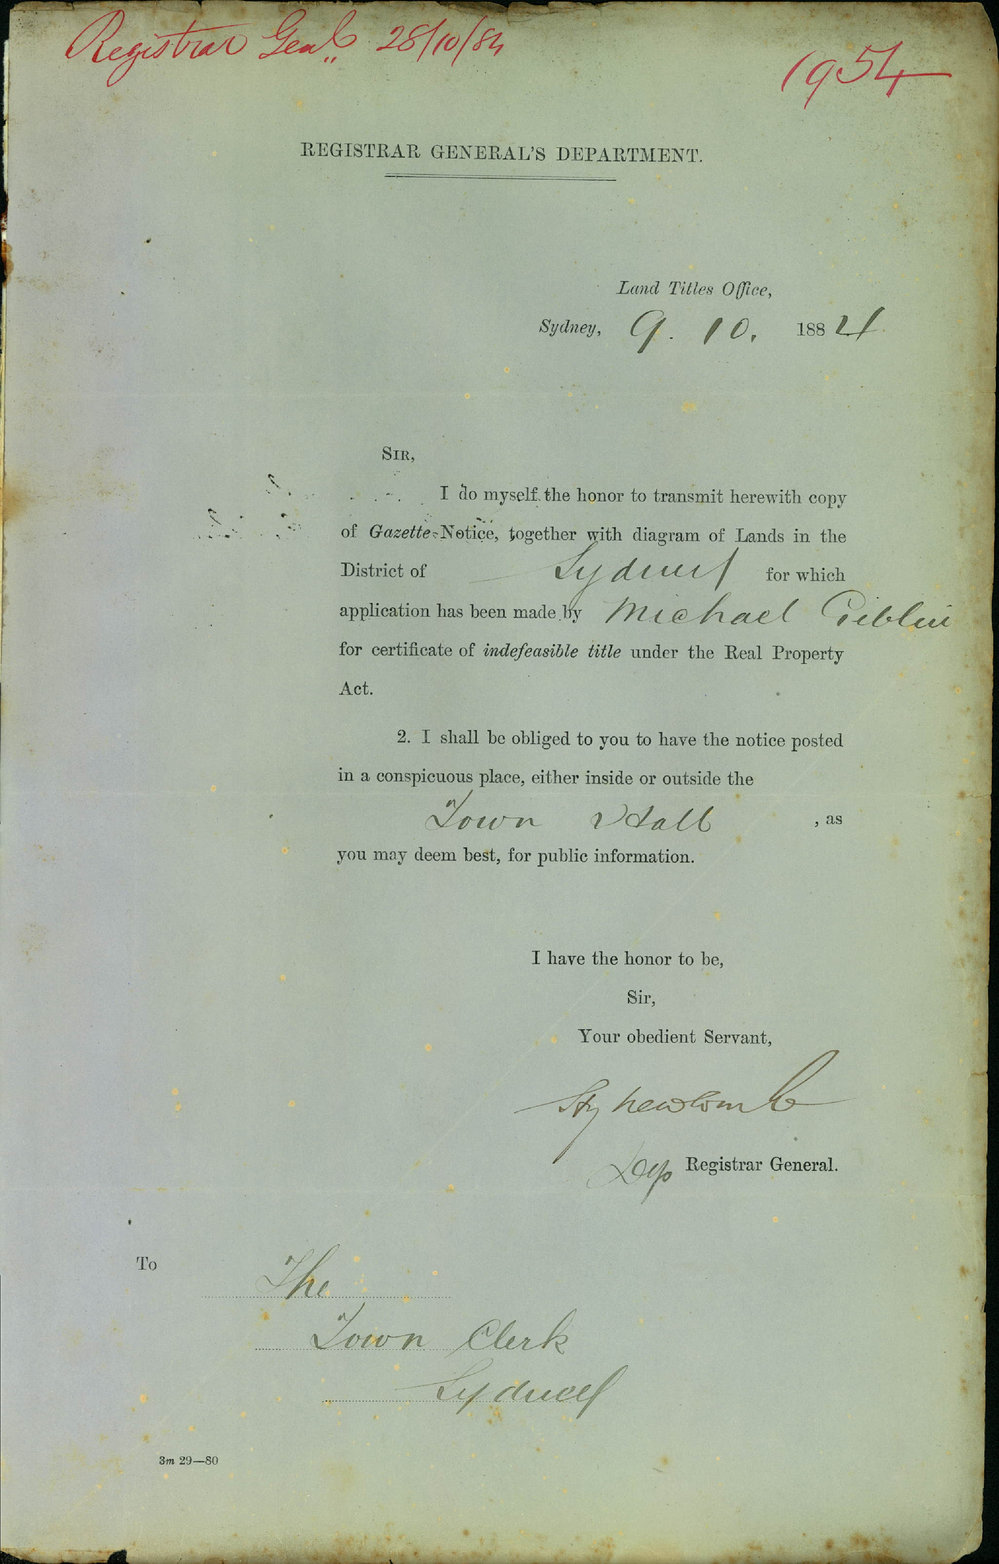 Registrar Genl. 28/10/84
1954
REGISTRAR GENERAL'S DEPARTMENT.
Land Titles Office,
Sydney, 9. 10. 1884
SIR,
I do myself the honor to transmit herewith copy
of Gazette Notice, together with diagram of Lands in the
District of Sydney for which
application has been made by Michael Giblin
for certificate of indefeasible title under the Real Property
Act.
2. I shall be obliged to you to have the notice posted
in a conspicuous place, either inside or outside the
Town Hall , as
you may deem best, for public information.
I have the honor to be,
Sir,
Your obedient Servant,
Newcomb
Dep Registrar General.
To The
Town Clerk
Sydney
3m 29—80